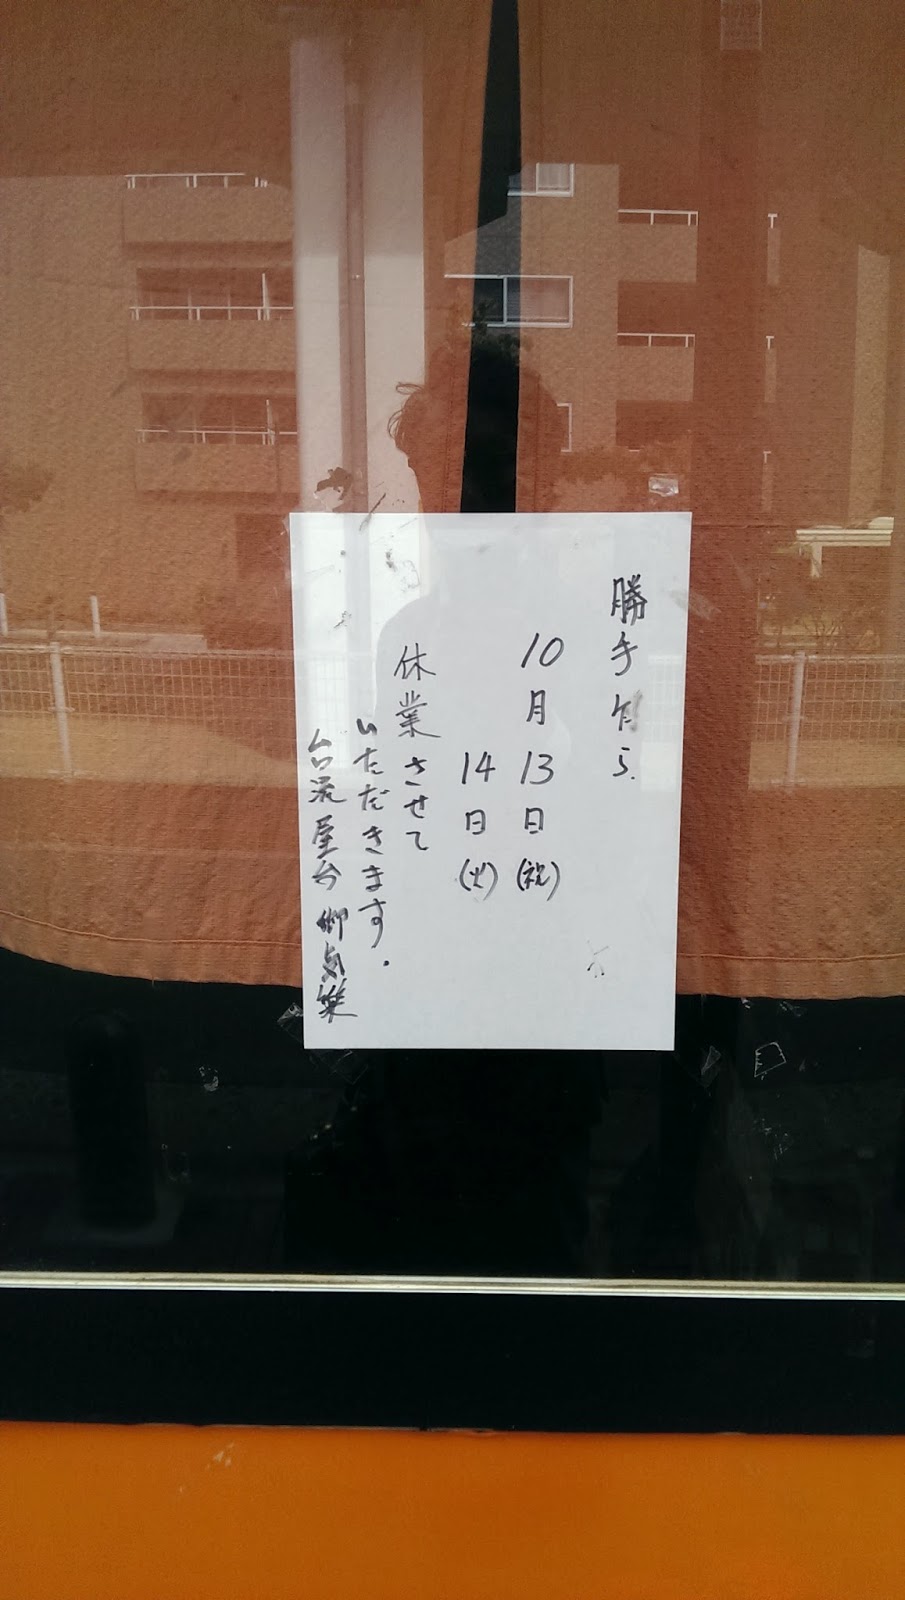 勝手乍ら
10月13日(祝)
14日(火)
休業させて
いただきます.
台流屋台 御気楽